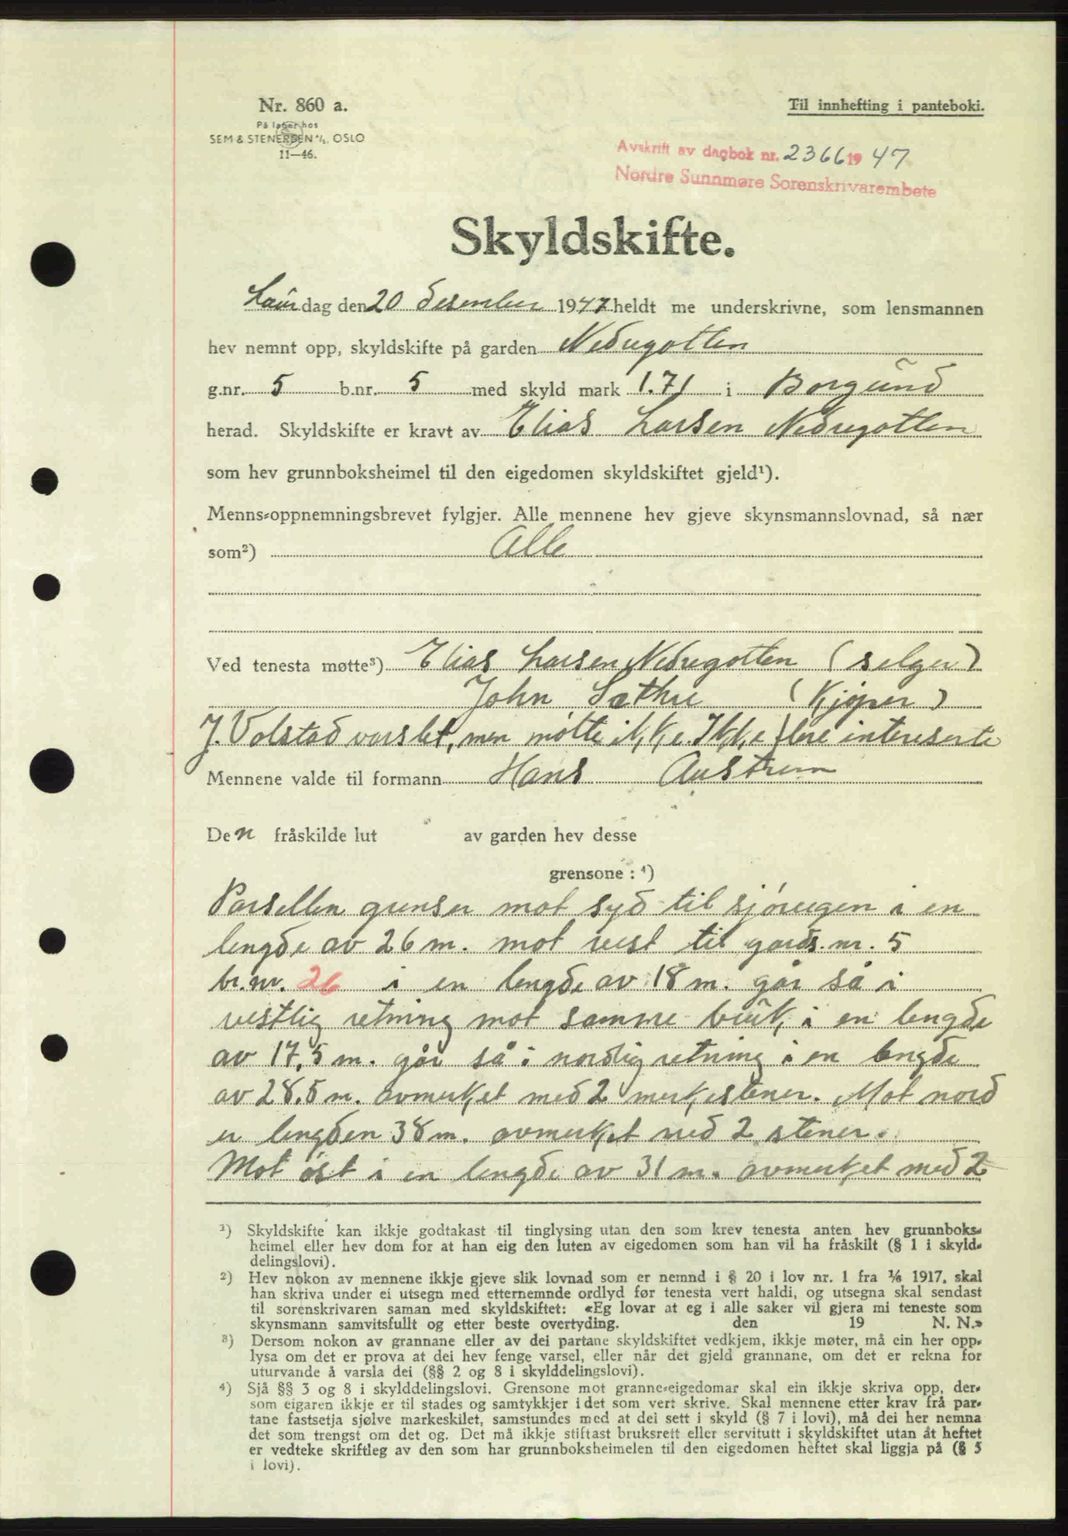 Nr. 860 a.
Til innhefting i panteboki.
På lager hos
SEM & STENERSEN A/S. OSLO
11—46.
Avskrift av dagbok nr. 2366 19 47
Nordre Sunnmøre Sorenskrivarembete
Skyldskifte.
Laurdag den 20 desember 1947 heldt me underskrivne, som lensmannen
hev nemnt opp, skyldskifte på garden Nedregotten
g.nr. 5 b.nr. 5 med skyld mark 1.71 i Borgund
herad. Skyldskifte er kravt av Elias Larsen Nedregotten
som hev grunnboksheimel til den eigedomen skyldskiftet gjeld¹).
Menns-oppnemningsbrevet fylgjer. Alle mennene hev gjeve skynsmannslovnad, så nær
som²) Alle
Ved tenesta møtte³) Elias Larsen Nedregotten (selger)
John Sæthre (Kjøper)
J. Volstad varslet, men møtte ikke. Ikke flere intereserte
Mennene valde til formann Hans Austrem
Den fråskilde lut av garden hev desse
grensone : ⁴)
Parsellen grenser mot syd til sjøveigen i en
lengde av 26 m. mot vest til gards.nr. 5
br.nr. 26 i en lengde av 18 m. går så i
vestlig retning mot samme bruk, i en lengde
av 17,5 m. går så i nordlig retning i en lengde
av 28.5 m. avmerket med 2 merkestener. Mot nord
er lengden 38 m. avmerket med 2 stener.
Mot øst i en lengde av 31 m. avmerket med 2
¹) Skyldskifte kan ikkje godtakast til tinglysing utan den som krev tenesta anten hev grunnboks-
heimel eller hev dom for at han eig den luten av eigedomen som han vil ha fråskilt (§ 1 i skyld-
delingslovi).
²) Hev nokon av mennene ikkje gjeve slik lovnad som er nemnd i § 20 i lov nr. 1 fra 1/6 1917, skal
han skriva under ei utsegn med etternemnde ordlyd før tenesta vert haldi, og utsegna skal sendast
til sorenskrivaren saman med skyldskiftet: «Eg lovar at eg i alle saker vil gjera mi teneste som
skynsmann samvitsfullt og etter beste overtyding. den 19 N. N.»
³) Dersom nokon av grannane eller av dei partane skyldskiftet vedkjem, ikkje møter, må ein her opp-
lysa om det er prova at dei hev fenge varsel, eller når det gjeld grannane, om det er rekna for
uturvande å varsla dei (§§ 2 og 8 i skylddelingslovi).
⁴) Sjå §§ 3 og 8 i skylddelingslovi. Grensone mot granne-eigedomar skal ein ikkje skriva opp, der-
som eigaren ikkje er til stades og samtykkjer i det som vert skrive. Skal mennene etter krav frå par-
tane fastsetja sjølve markeskilet, samstundes med at dei sett i skyld (§ 7 i lovi), må dei her nemna
det som trengst om det og. Det må ikkje stiftast bruksrett eller servitutt i skyldskiftet utan åt heftet
er vedteke skriftleg av den som har grunnboksheimelen til den eigedomen heftet skal liggja på (§ 5
i lovi).